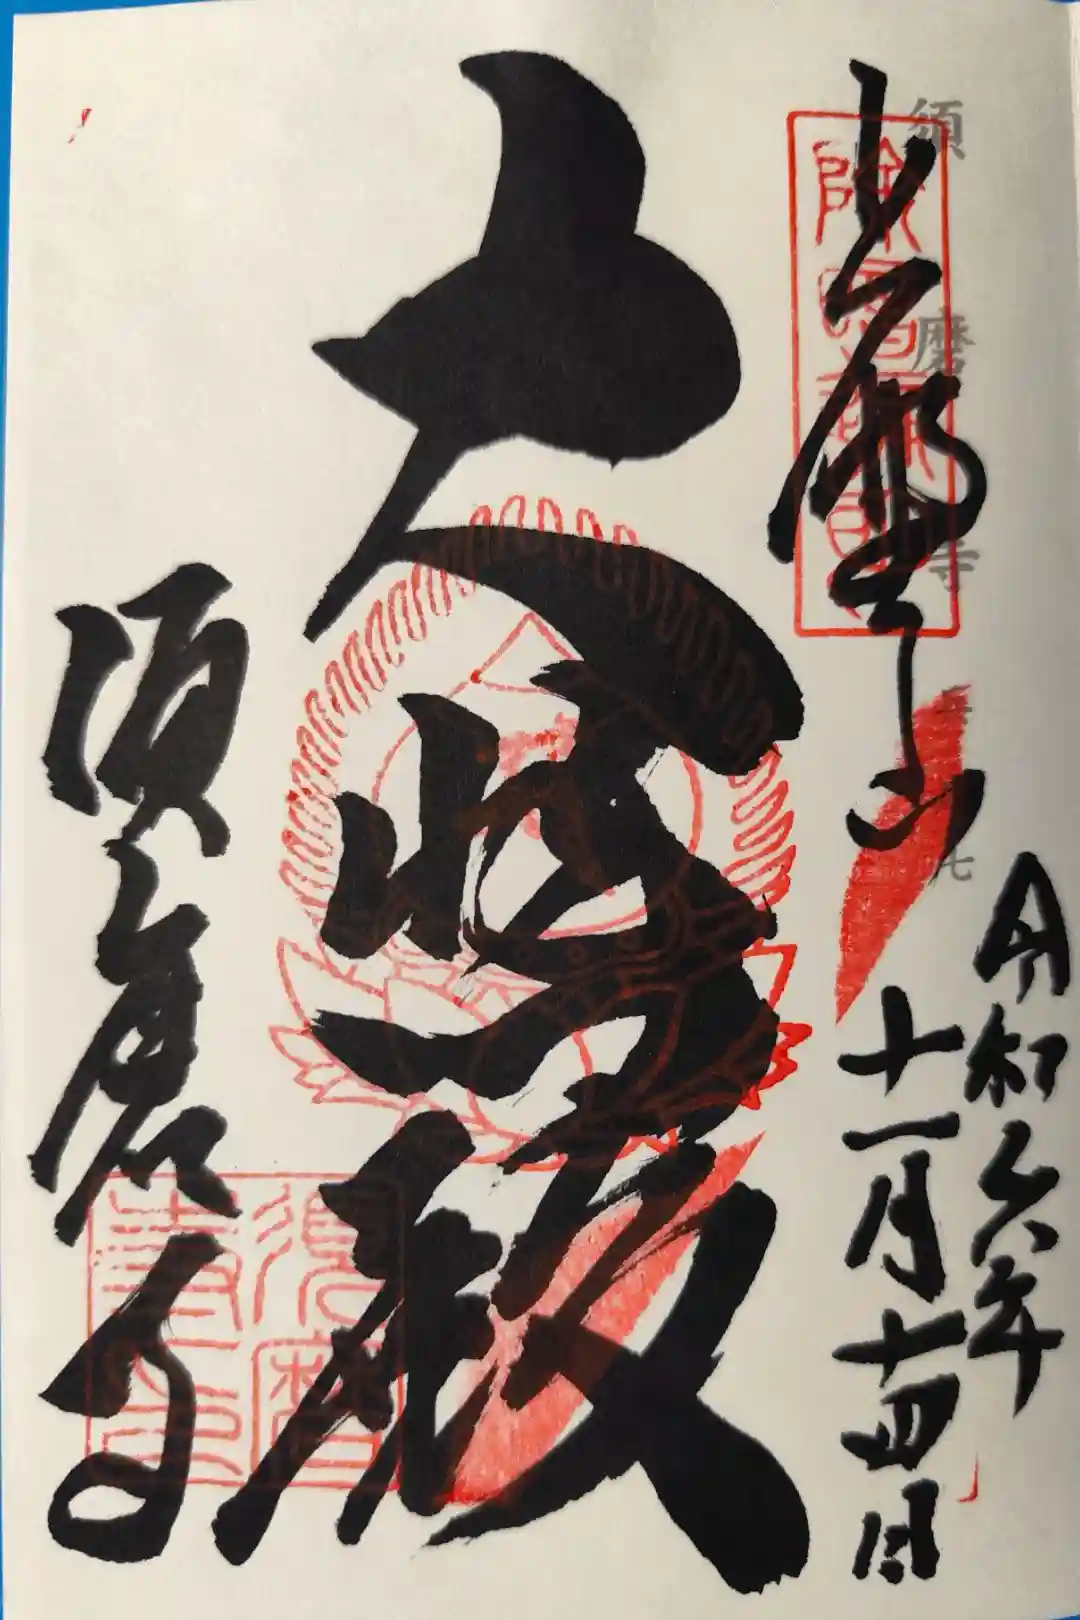 須磨寺
上野山
令和六年
十一月十四日
大悲殿
須磨寺